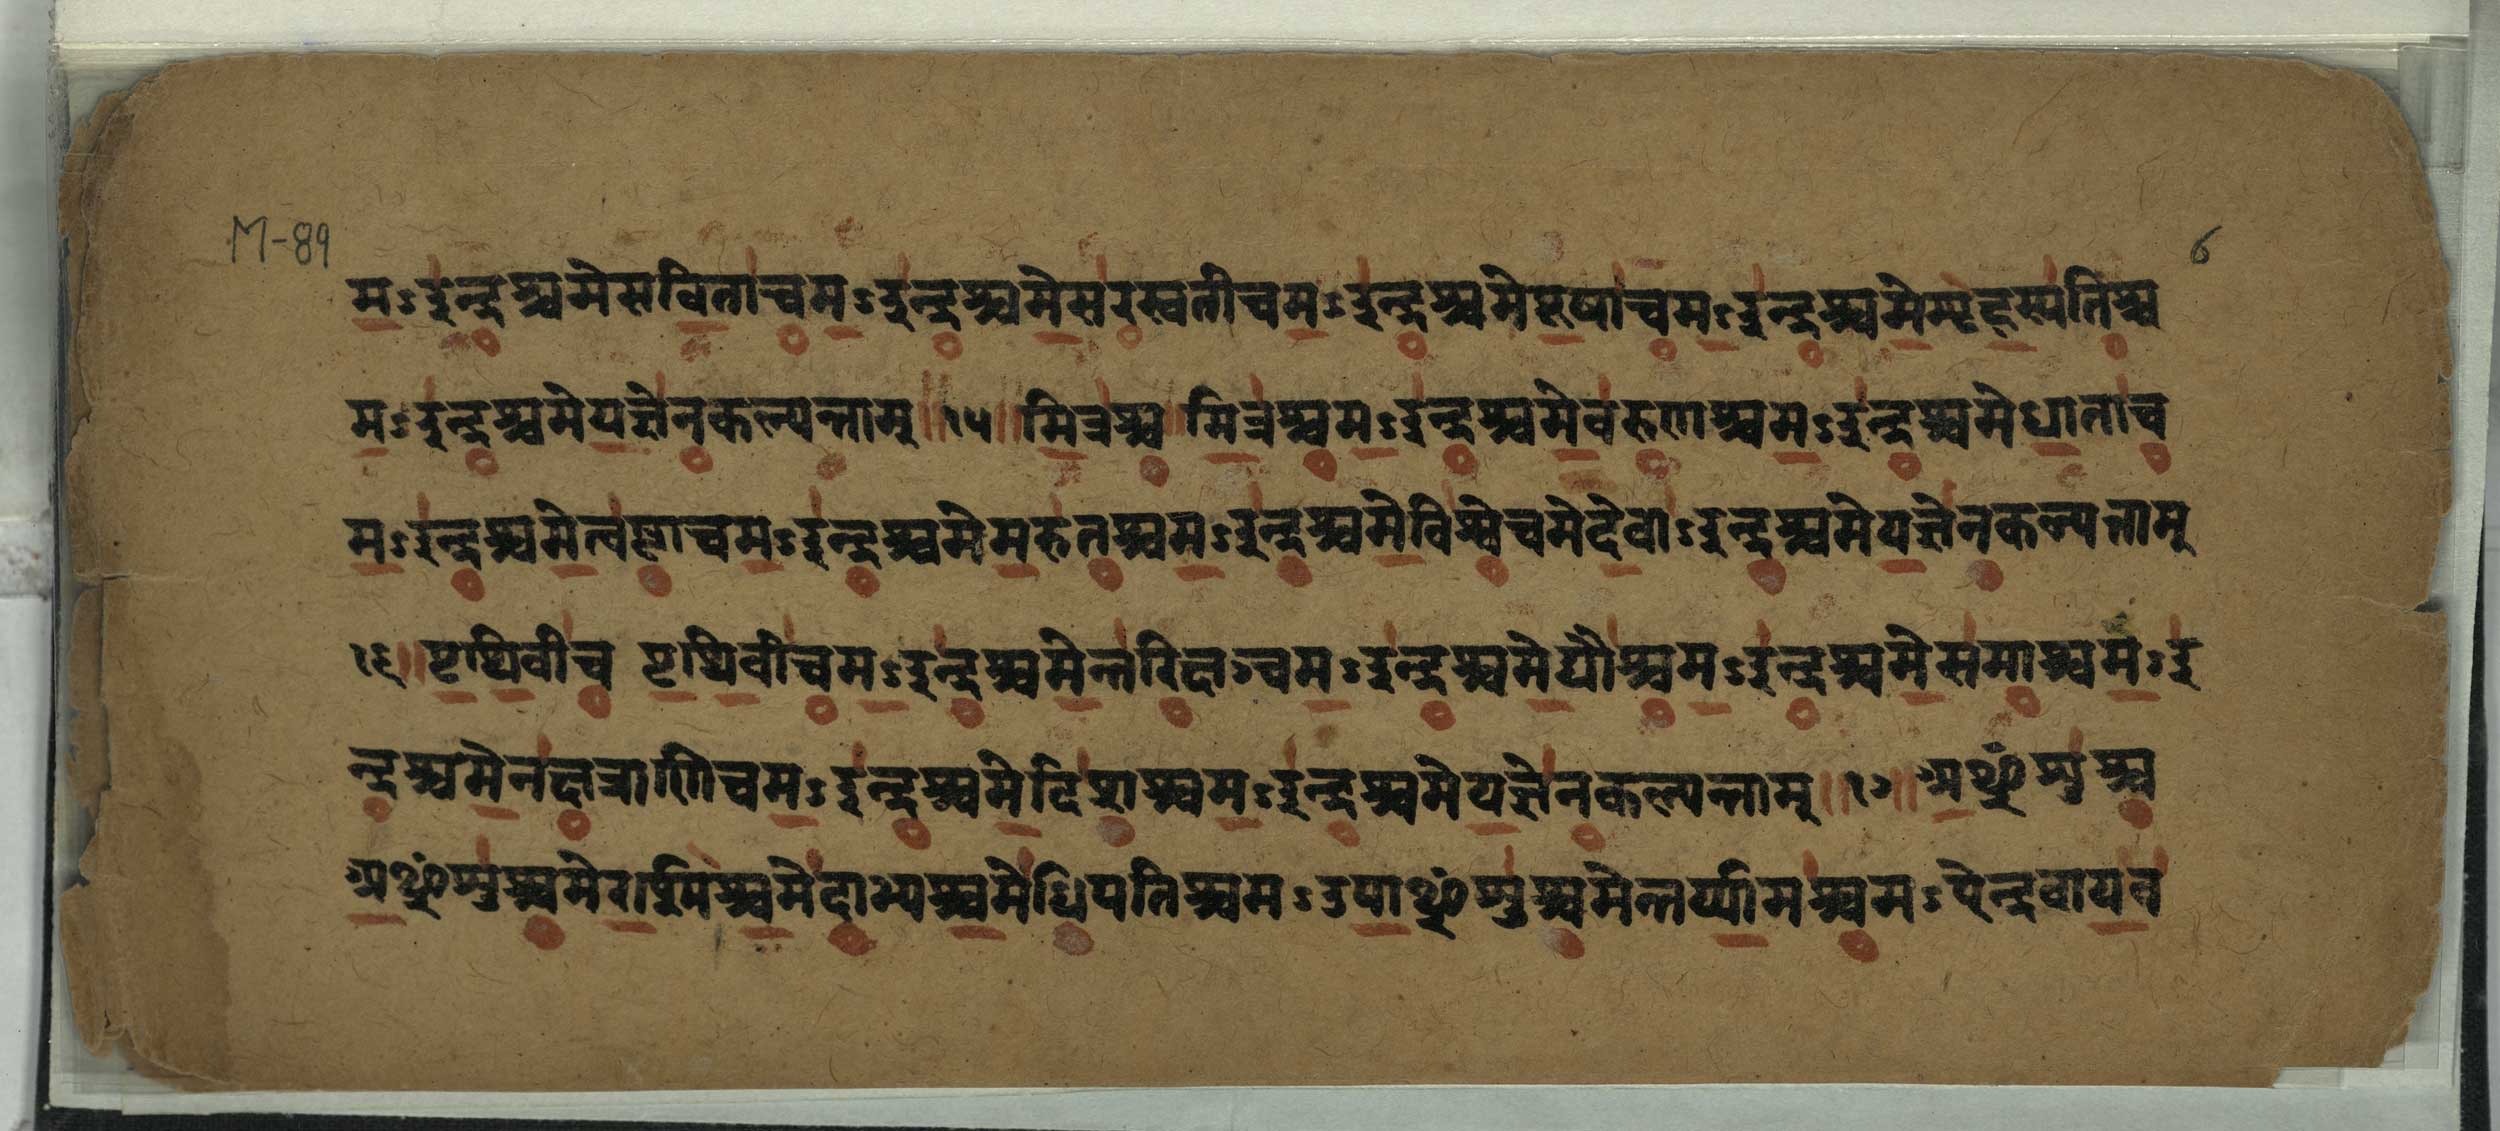 M-89
6
मऽइन्द्रश्चमेसविताचमऽइन्द्रश्चमेसरस्वतीचमऽइन्द्रश्चमेपूषाचमऽइन्द्रश्चमेबृहस्पतिश्च
मऽइन्द्रश्चमेयज्ञेनकल्पन्ताम् ॥१५॥ मित्रश्च मित्रश्चमऽइन्द्रश्चमेवरुणश्चमऽइन्द्रश्चमेधाताच
मऽइन्द्रश्चमेत्वष्टाचमऽइन्द्रश्चमेमरुतश्चमऽइन्द्रश्चमेविश्वेचमेदेवाऽइन्द्रश्चमेयज्ञेनकल्पन्ताम्
१६॥ पृथिवीच पृथिवीचमऽइन्द्रश्चमेन्तरिक्षञ्चमऽइन्द्रश्चमेद्यौश्चमऽइन्द्रश्चमेसमाश्चमऽइ
न्द्रश्चमेनक्षत्राणिचमऽइन्द्रश्चमेदिशश्चमऽइन्द्रश्चमेयज्ञेनकल्पन्ताम् ॥१७॥ अꣳशुश्च
अꣳशुश्चमेरश्मिश्चमेदाभ्यश्चमेधिपतिश्चमऽउपाꣳशुश्चमेन्तर्य्यामश्चमऽऐन्द्रवायव